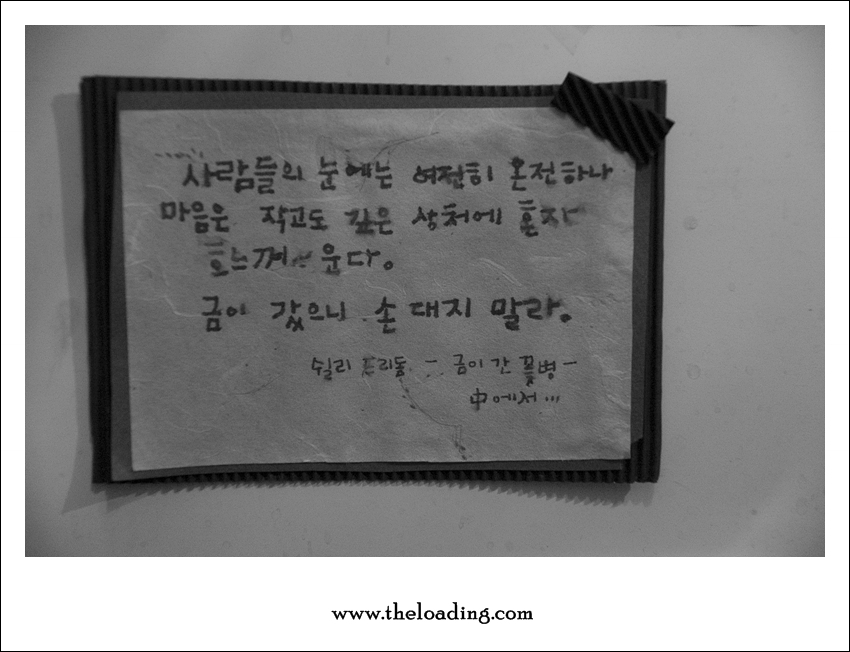 사람들의 눈에는 여전히 온전하나
마음은 작고도 깊은 상처에 혼자
흐느껴 운다.
금이 갔으니 손 대지 말라.
쉴리 프리동 - 금이 간 꽃병 -
中에서...
www.theloading.com